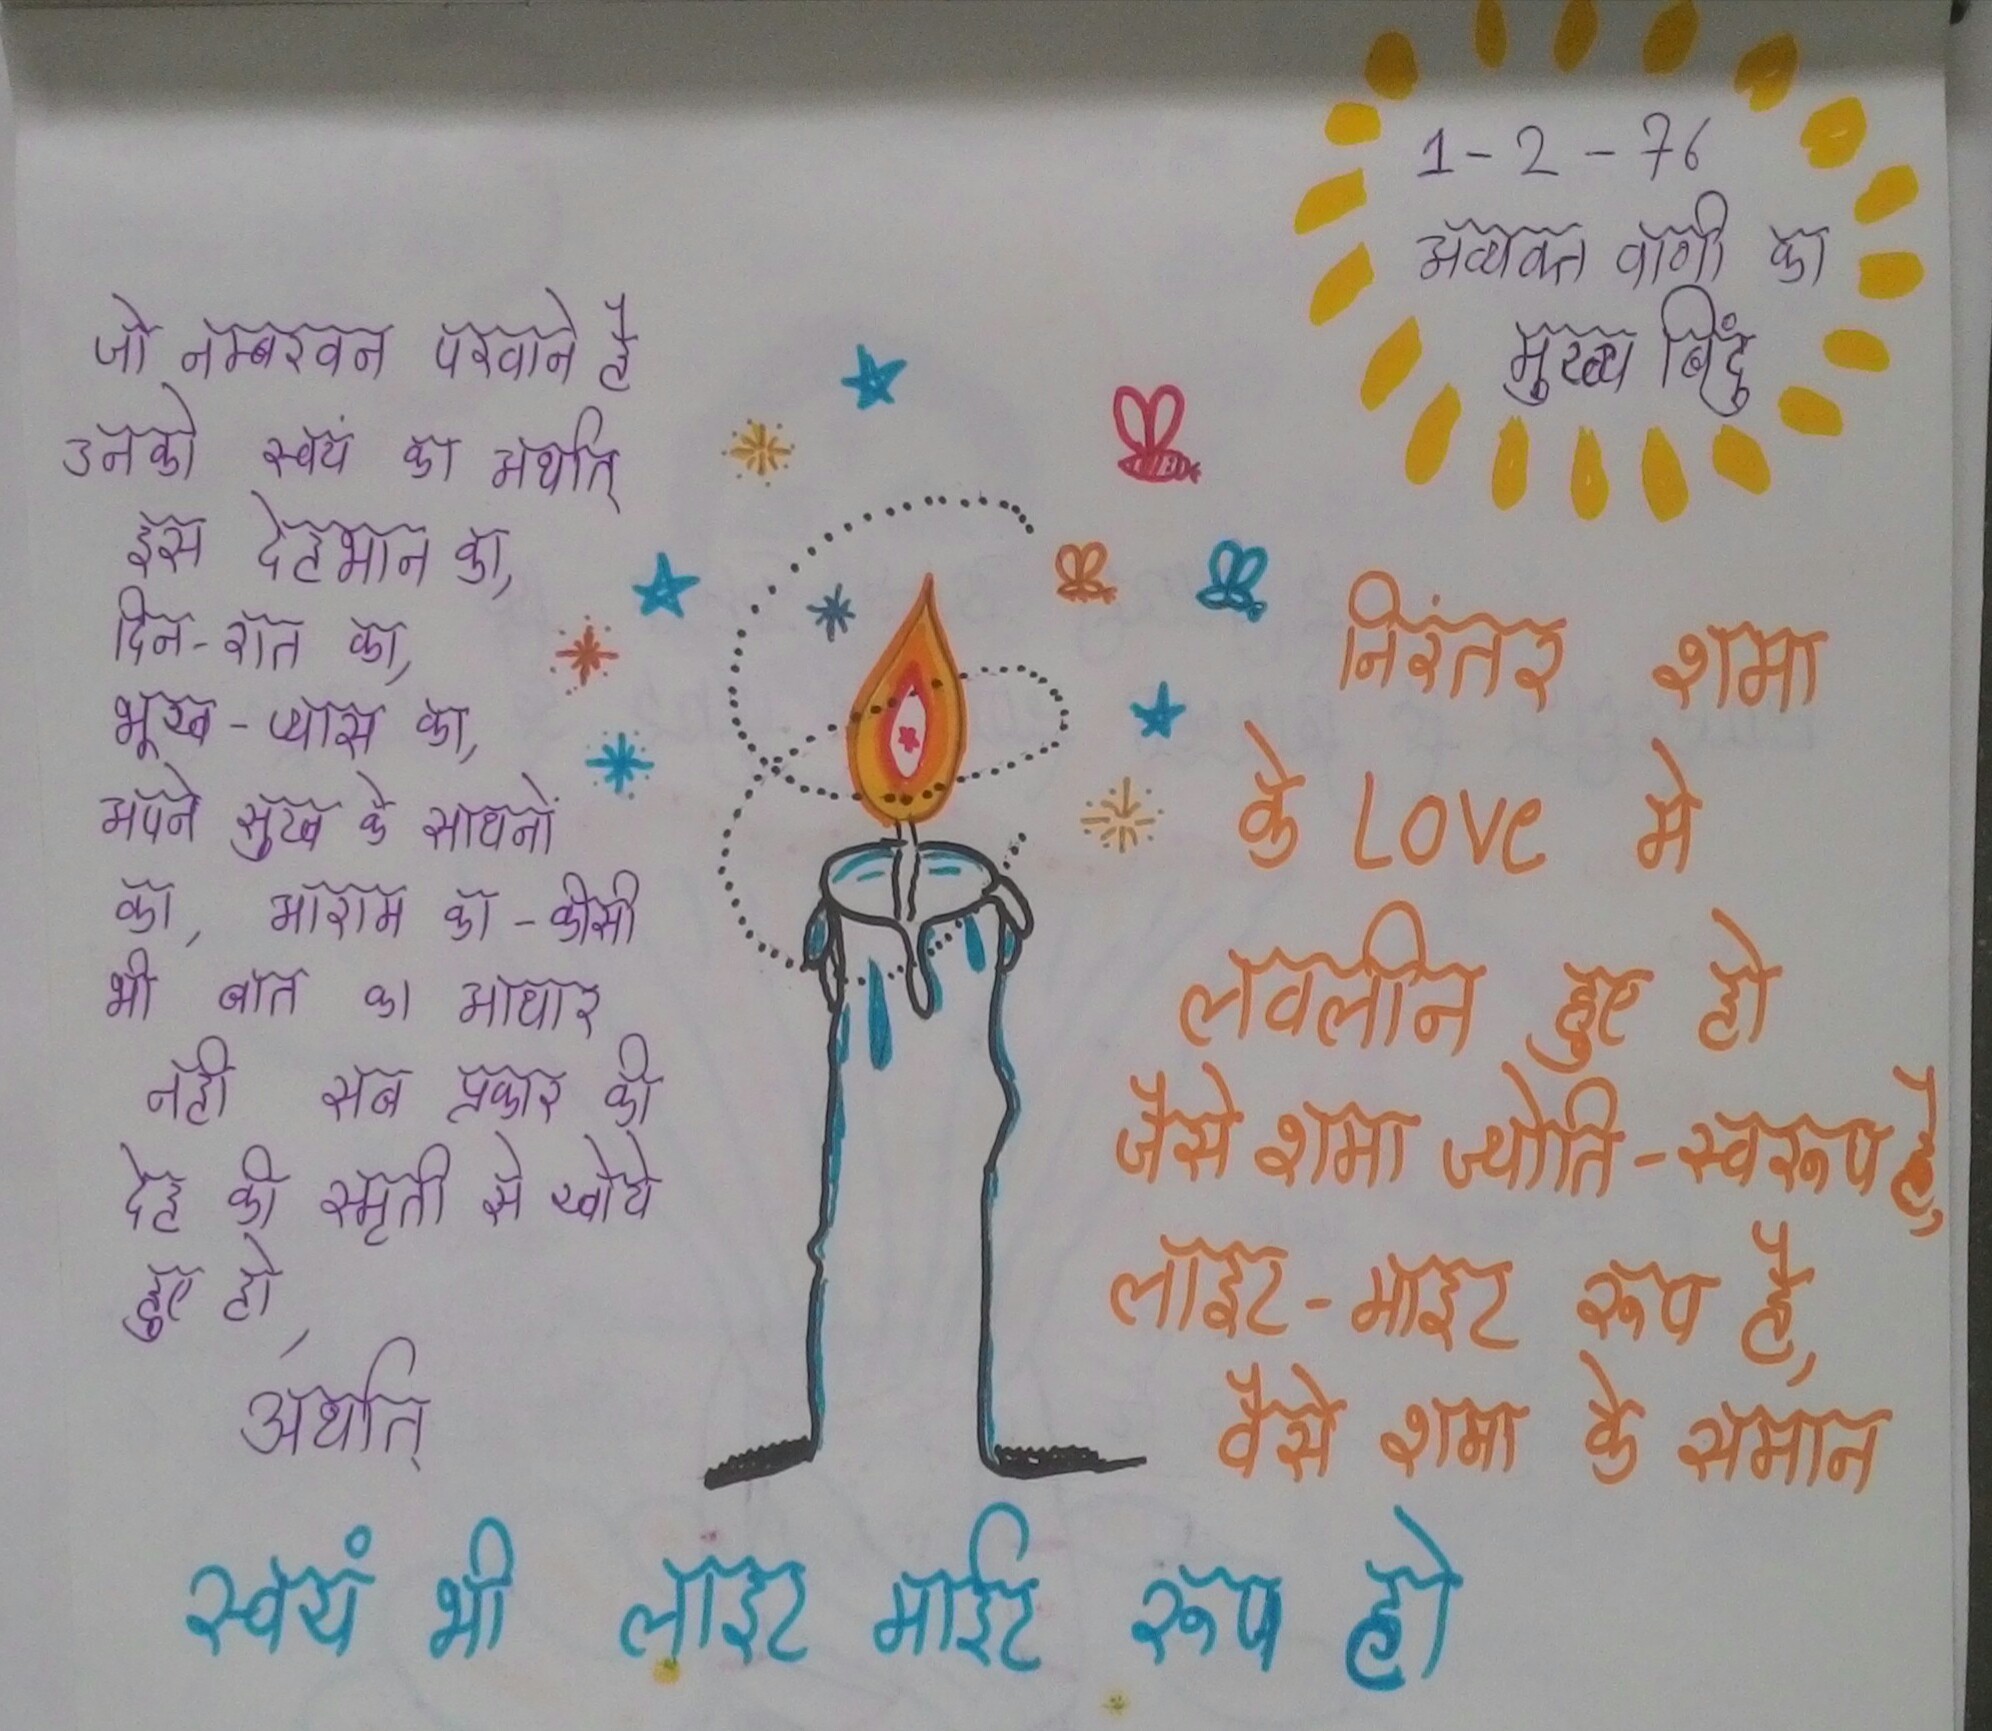 1-2-76
अव्यक्त वाणी का
मुख्य बिंदु
जो नम्बरवन परवाने है
उनको स्वयं का अर्थात्
इस देहभान का,
दिन-रात का,
भूख-प्यास का,
अपने सुख के साधनों
का, आराम का-कीसी
भी बात का आधार
नही सब प्रकार की
देह की स्मृती से खोये
हुए हो,
अर्थात्
निरंतर शमा
के Love मे
लवलीन हुए हो
जैसे शमा ज्योति-स्वरूप है,
लाइट-माइट रूप है,
वैसे शमा के समान
स्वयं भी लाइट माईट रूप हो